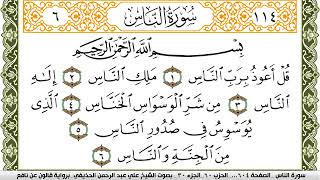 ١١٤ سُورَةُ النَّاسِ ٦
بِسْمِ اللَّهِ الرَّحْمَٰنِ الرَّحِيمِ
قُلْ أَعُوذُ بِرَبِّ النَّاسِ ١ مَلِكِ النَّاسِ ٢ إِلَٰهِ
النَّاسِ ٣ مِن شَرِّ الْوَسْوَاسِ الْخَنَّاسِ ٤ الَّذِي
يُوَسْوِسُ فِي صُدُورِ النَّاسِ ٥
مِنَ الْجِنَّةِ وَالنَّاسِ ٦
سورة الناس . الصفحة ٦٠٤ .... الحزب ٦٠ . الجزء ٣٠ . بصوت الشيخ علي عبد الرحمن الحذيفي . برواية قالون عن نافع